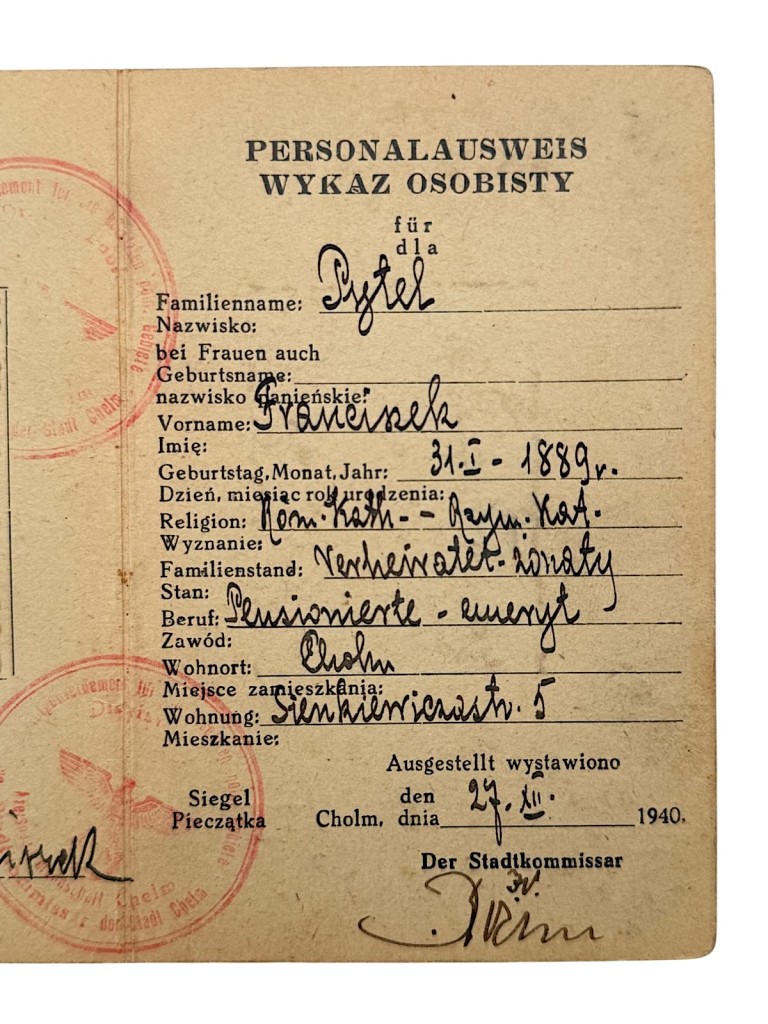 PERSONALAUSWEIS
WYKAZ OSOBISTY
für
dla
Familienname: Pytel
Nazwisko:
bei Frauen auch
Geburtsname:
nazwisko panieńskie:
Vorname: Franciszek
Imię:
Geburtstag, Monat, Jahr: 31.I - 1889 r.
Dzień, miesiąc rok urodzenia:
Religion: Röm. Kath. - Rzym. Kat.
Wyznanie:
Familienstand: Verheiratet - żonaty
Stan:
Beruf: Pensionierte - emeryt
Zawód:
Wohnort: Cholm
Miejsce zamieszkania:
Wohnung: Sienkiewiczastr. 5
Mieszkanie:
Ausgestellt wystawiono
Siegel
Pieczątka
den
Cholm, dnia 27. XII. 1940.
Der Stadtkommissar
der Stadt Chelm
der Stadt Chelm